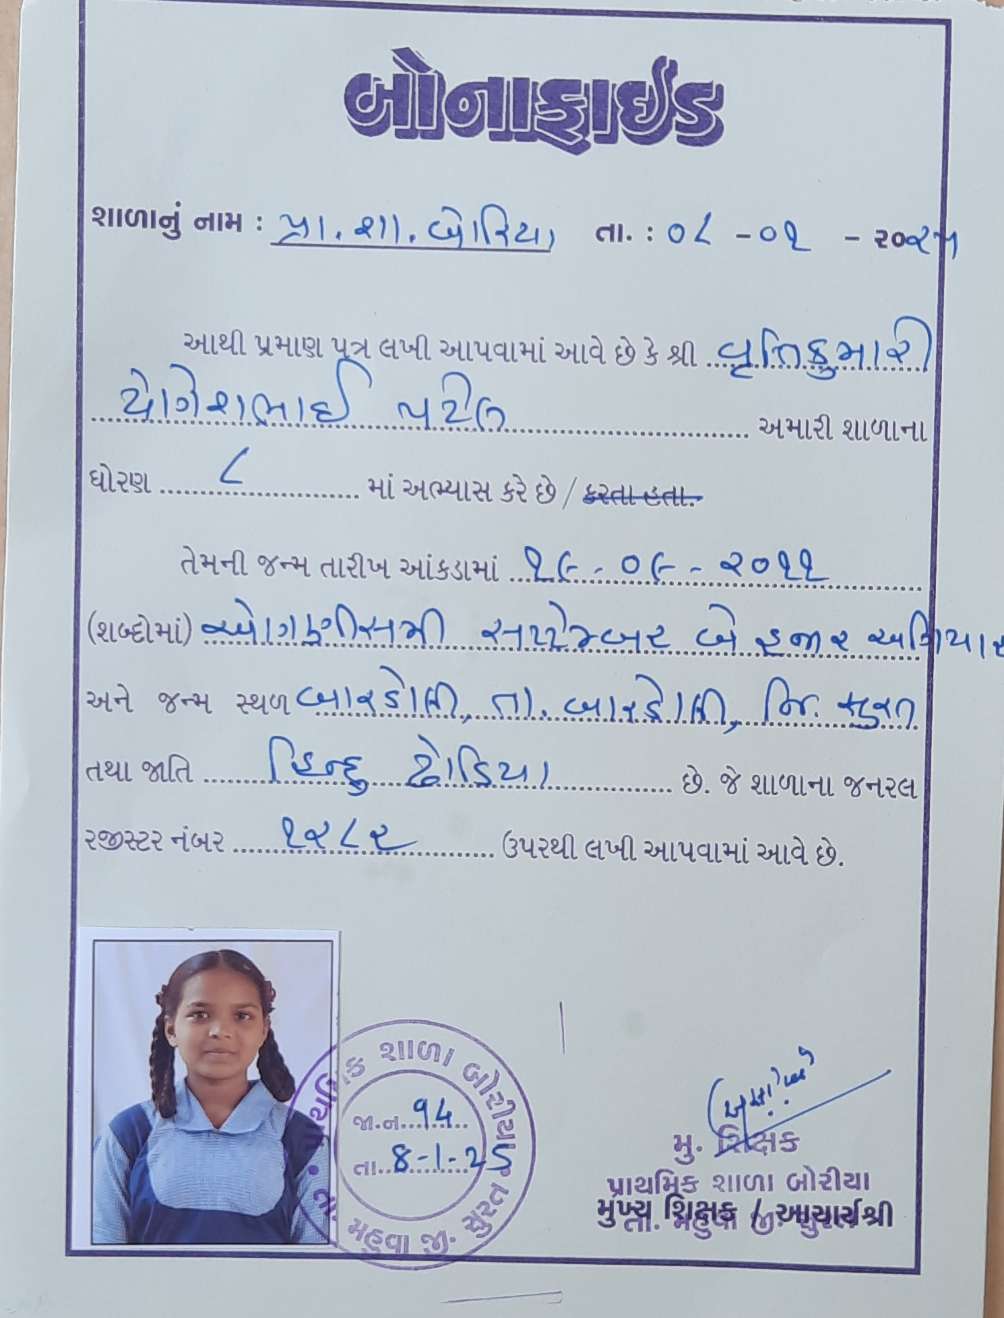 બોનાફાઈડ
શાળાનું નામ : પ્રા. શા. બોરિયા તા. : ૦૮ - ૦૧ - ૨૦૨૫
આથી પ્રમાણ પત્ર લખી આપવામાં આવે છે કે શ્રી વૃત્તિકુમારી
યોગેશભાઈ પટેલ અમારી શાળાના
ધોરણ ૮ માં અભ્યાસ કરે છે / કરતા હતા.
તેમની જન્મ તારીખ આંકડામાં ૧૯-૦૯-૨૦૧૧
(શબ્દોમાં) ઓગણીસમી સપ્ટેમ્બર બે હજાર અગિયાર
અને જન્મ સ્થળ બારડોલી, તા. બારડોલી, જિ. સુરત
તથા જાતિ હિન્દુ ઢોડિયા છે. જે શાળાના જનરલ
રજીસ્ટર નંબર ૧૨૮૨ ઉપરથી લખી આપવામાં આવે છે.
પ્રાથમિક શાળા બોરીયા
જા.ન. ૧૪
તા. 8-1-25
તા. મહુવા જી. સુરત
મુ. શિક્ષક
પ્રાથમિક શાળા બોરીયા
તા. મહુવા જી. સુરત
મુખ્ય શિક્ષક / આચાર્યશ્રી